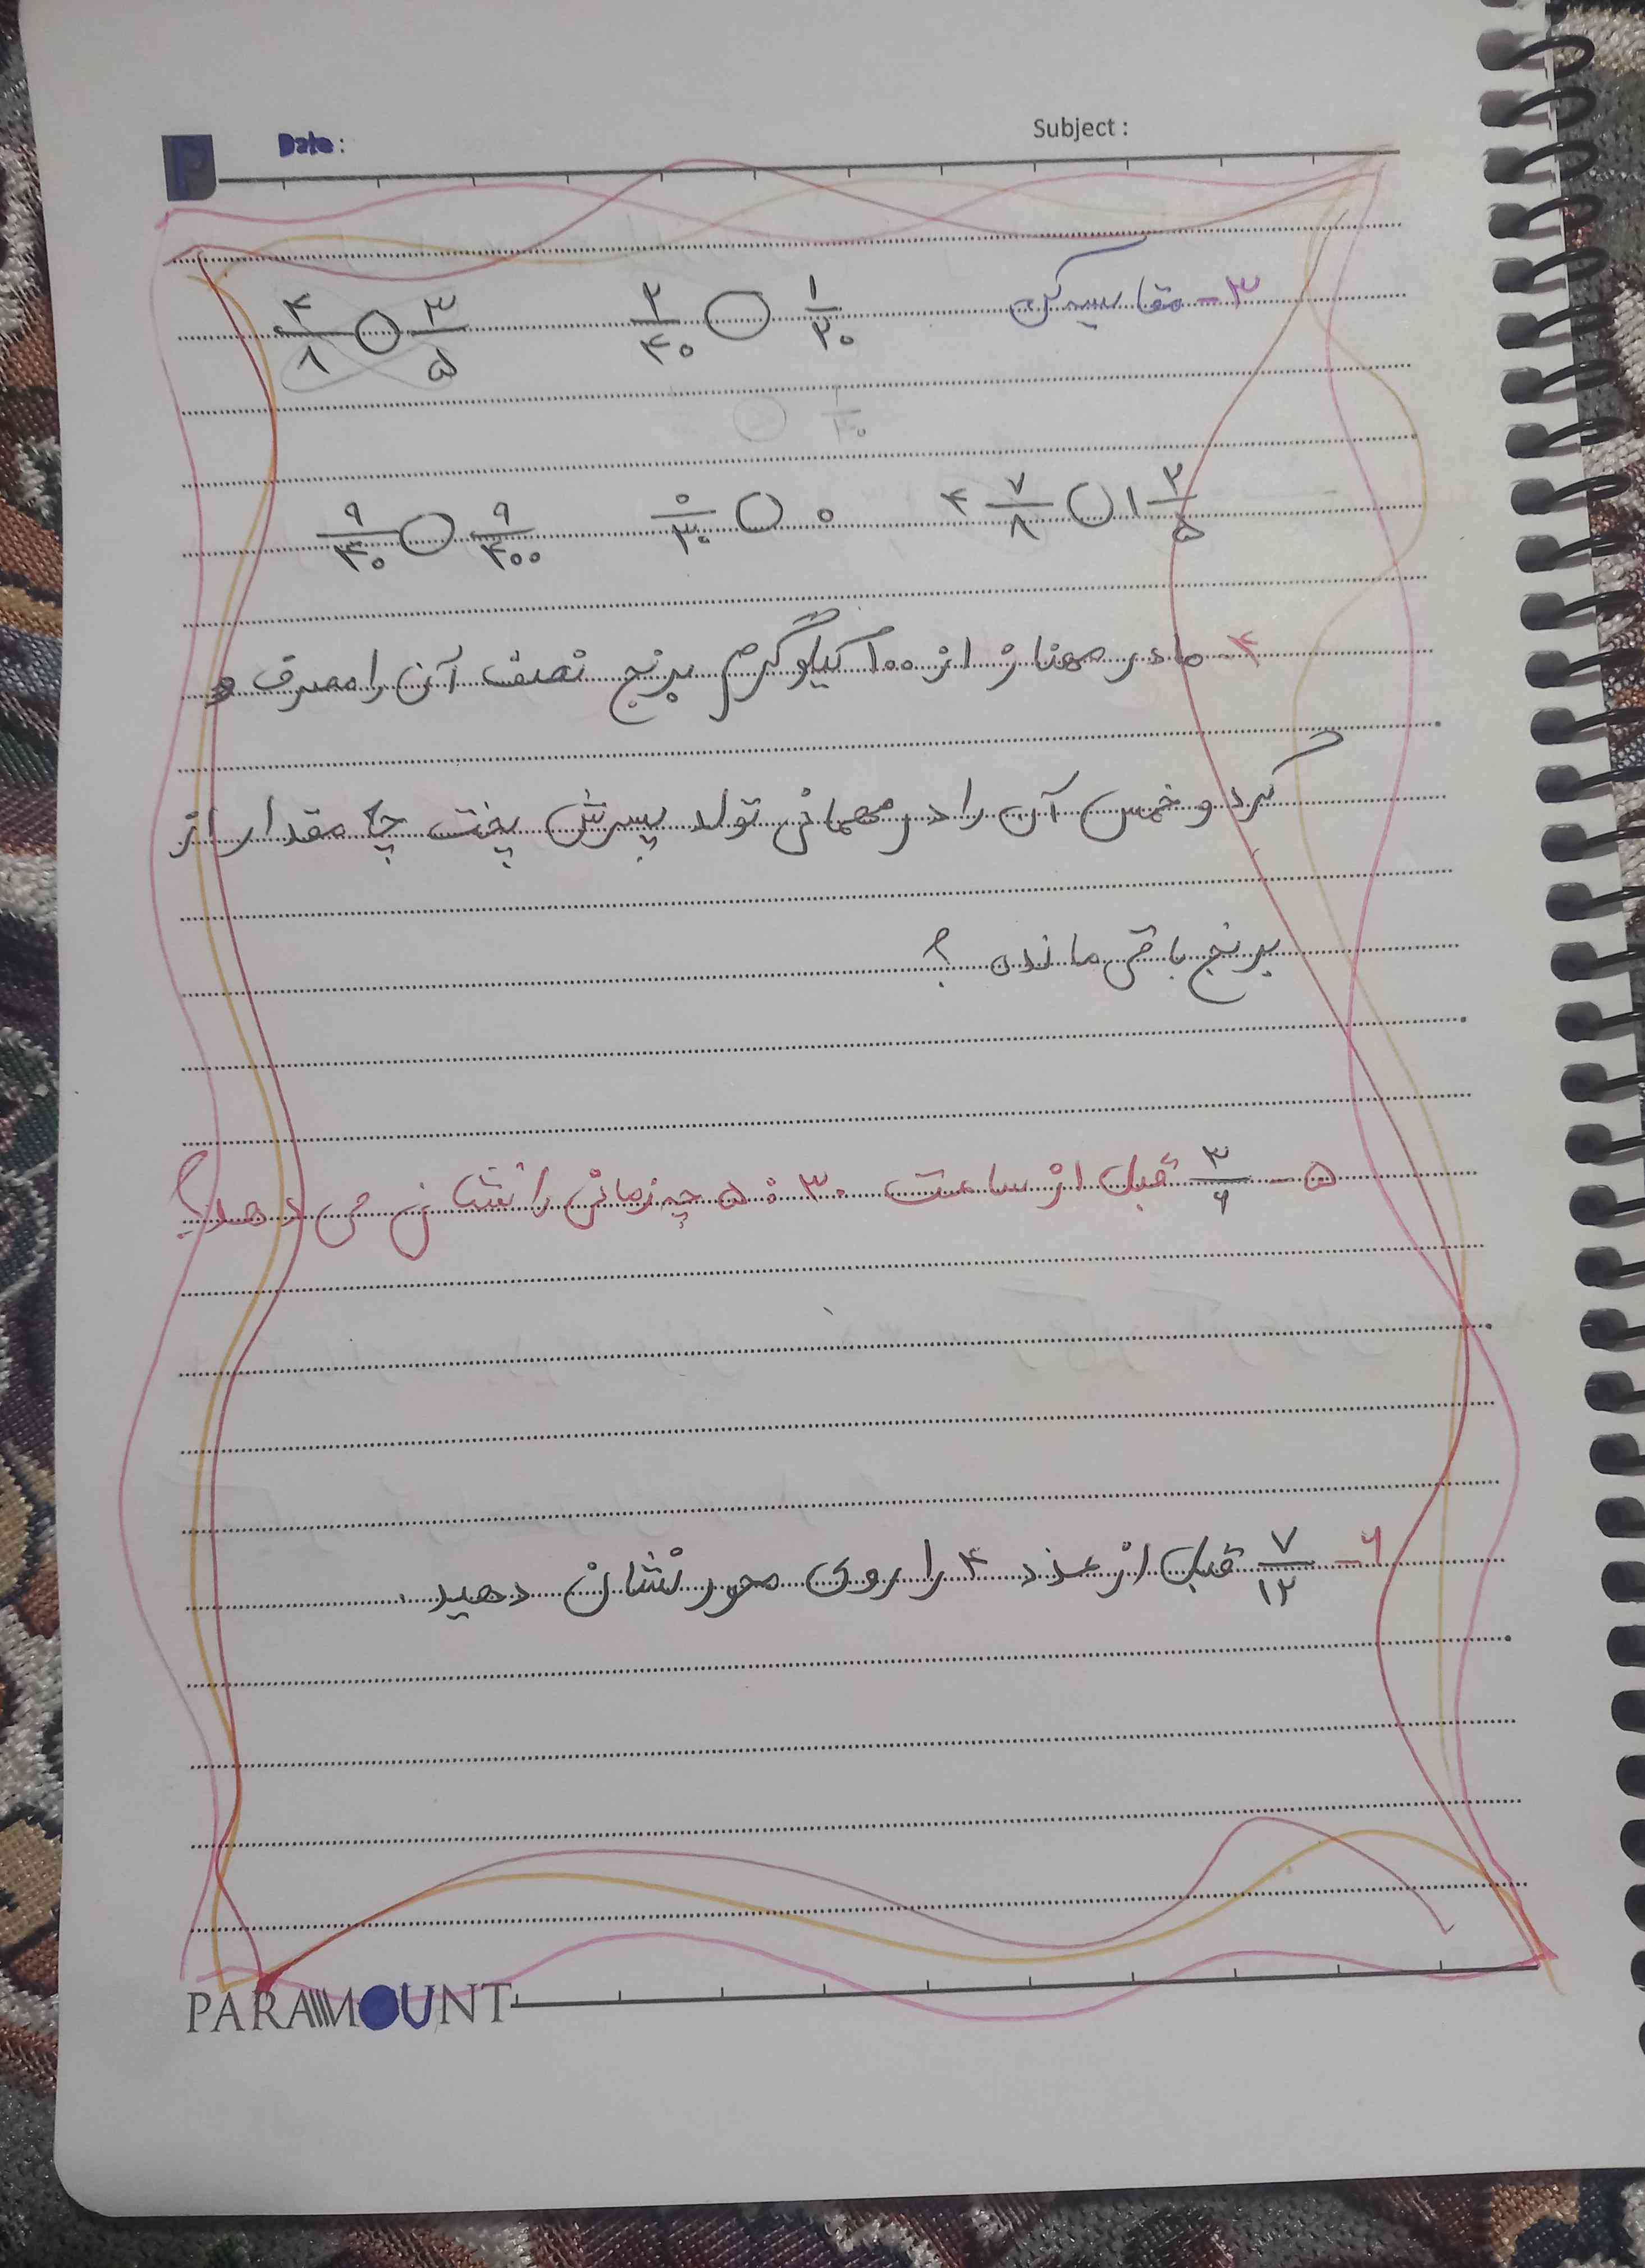 Date :
Subject :
۳- مقایسه کن ۱/۲۰ ○ ۲/۴۰ ۳/۵ ○ ۴/۸
۱ ۲/۵ ○ ۴ ۷/۸ ۰ ○ ۰/۳۰ ۹/۴۰۰ ○ ۹/۴۰
۴- مادر مهناز از ۱۰۰ کیلوگرم برنج نصف آن را مصرف و
کرد و خمس آن را در مهمانی تولد پسرش پخت چه مقدار از
برنج باقی مانده ؟
۵- ۳/۶ قبل از ساعت ۵:۳۰ چه زمانی را نشان می دهد؟
۶- ۷/۱۲ قبل از عدد ۴ را روی محور نشان دهید.
PARAMOUNT